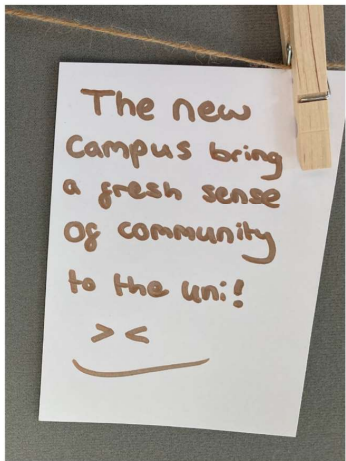 The new
campus bring
a fresh sense
of community
to the uni!
> <